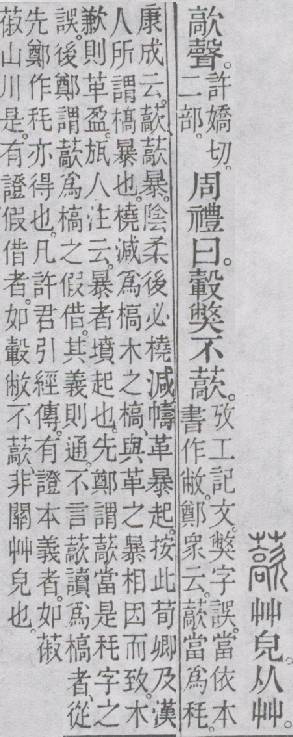 藃艸皃。从艸。
歊聲。許嬌切。二部。周禮曰。轂獘不藃。攷工記文。獘字誤。當依本書作敝。鄭衆云。藃當爲秏。
康成云。藃、藃暴。陰柔後必橈減。幬革暴起。按此荀卿及漢
人所謂槁暴也。橈減爲槁木之槁。與革之暴相因而致。木
歉則革盈。旊人注云。暴者墳起也。先鄭謂藃當是秏字之
誤。後鄭謂藃爲槁之假借。其義則通。不言藃讀爲槁者、從
先鄭作秏亦得也。凡許君引經傳。有證本義者。如蔋
蔋山川是。有證假借者。如轂敝不藃、非關艸皃也。